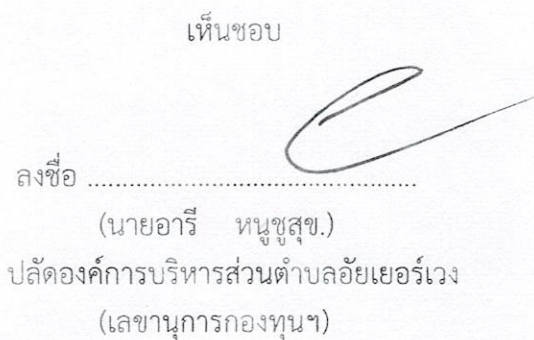 เห็นชอบ
ลงชื่อ ..........................................
(นายอารี หนูชูสุข.)
ปลัดองค์การบริหารส่วนตำบลอัยเยอร์เวง
(เลขานุการกองทุนฯ)